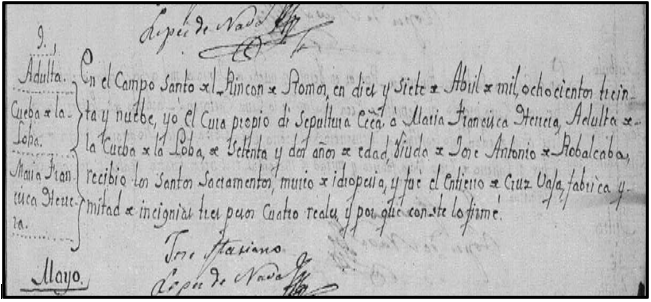 Lopez de Nava
9.
Adulta.
Cueba de la
Loba.
Maria Fran-
cisca Herre-
ra.
En el Campo Santo del Rincon de Romos, en dies y Siete de Abril de mil, ochocientos trein-
ta y nuebe, yó el Cura propio di Sepultura Ecca. a Maria Francisca Herrera, Adulta de
la Cueba de la Loba, de Setenta y dos años de edad, Viuda de José Antonio de Robalcaba,
recibio los Santos Sacramentos, murio de idropecia, y fué el Entierro de Cruz Vaja, fabrica y
mitad de incignias tres pesos Cuatro reales, y por que conste lo firmé.
José Mariano
Lopez de Nava
Mayo.